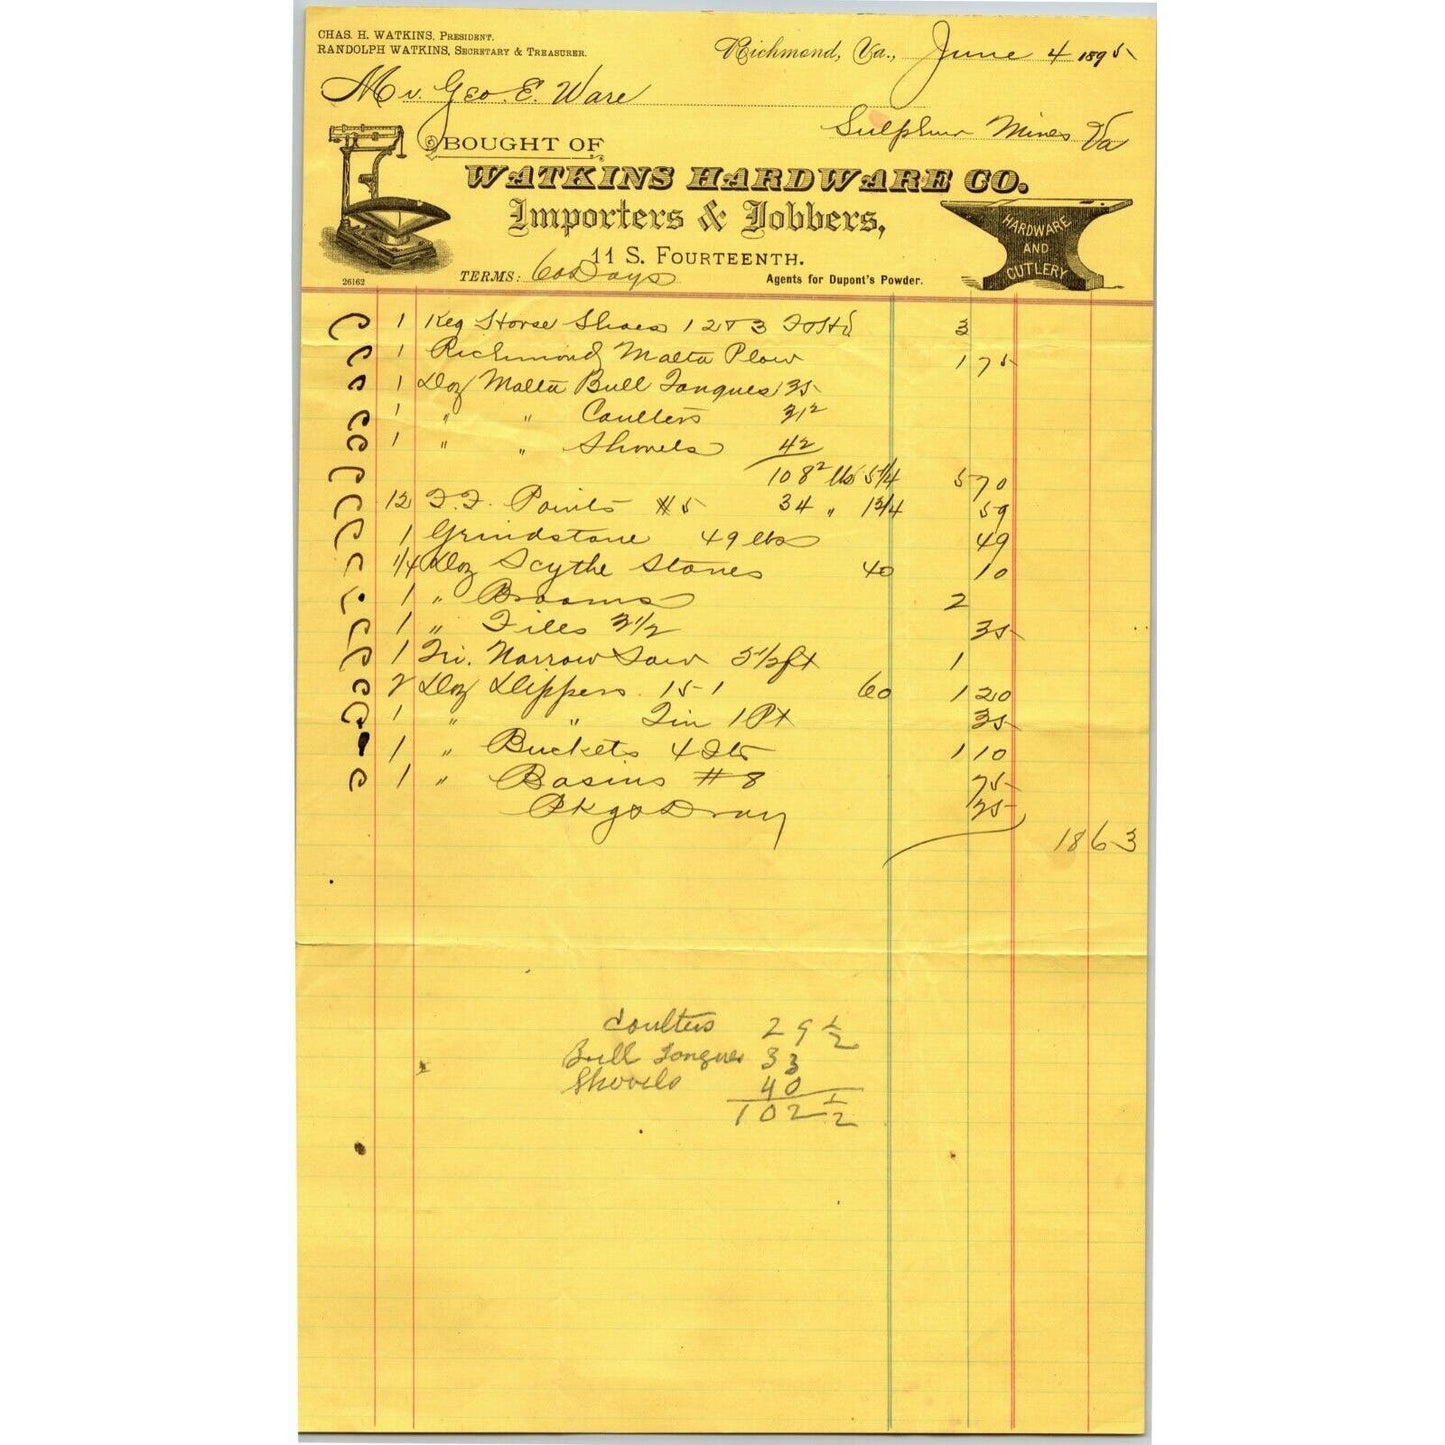 CHAS. H. WATKINS, PRESIDENT.
RANDOLPH WATKINS, SECRETARY & TREASURER.
Richmond, Va., June 4 1895
Mr. Geo. E. Ware
Sulphur Mines Va
BOUGHT OF
WATKINS HARDWARE CO.
Importers & Jobbers,
11 S. FOURTEENTH.
HARDWARE
AND
CUTLERY
TERMS: 60 Days
Agents for Dupont's Powder.
26162
1 Keg Horse Shoes 1 2 & 3 3
1 Richmond Malta Plow 1 75
1 Doz Malta Bull Tongues 35
1 " " Coulters 31 2
1 " " Shovels 42
108 2 lbs 5 1/4 5 70
12 F.F. Points #5 34 " 1 3/4 59
1 Grindstone 49 lbs 49
1/4 Doz Scythe Stones 40 10
1 " Brooms 2
1 " Files 3 1/2 35
1 Narrow Saw 5 1/2 ft 1
2 Doz Dippers 151 60 1 20
1 " " Tin 1 Pt 35
1 " Buckets 4 Qts 1 10
1 " Basins #8 75
Pkg & Dray 25
18 63
Coulters 29 1/2
Bull Tongues 33
Shovels 40
102 1/2